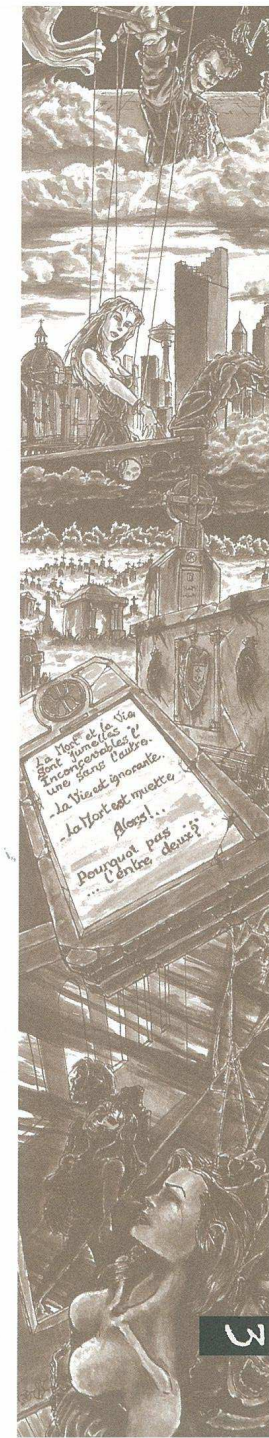 La Mort et la Vie
sont jumelles
Inconcevables l'
une sans l'autre.
- La Vie est ignorante.
- La Mort est muette
Alors!...
Pourquoi pas ...
... l'entre deux?
3